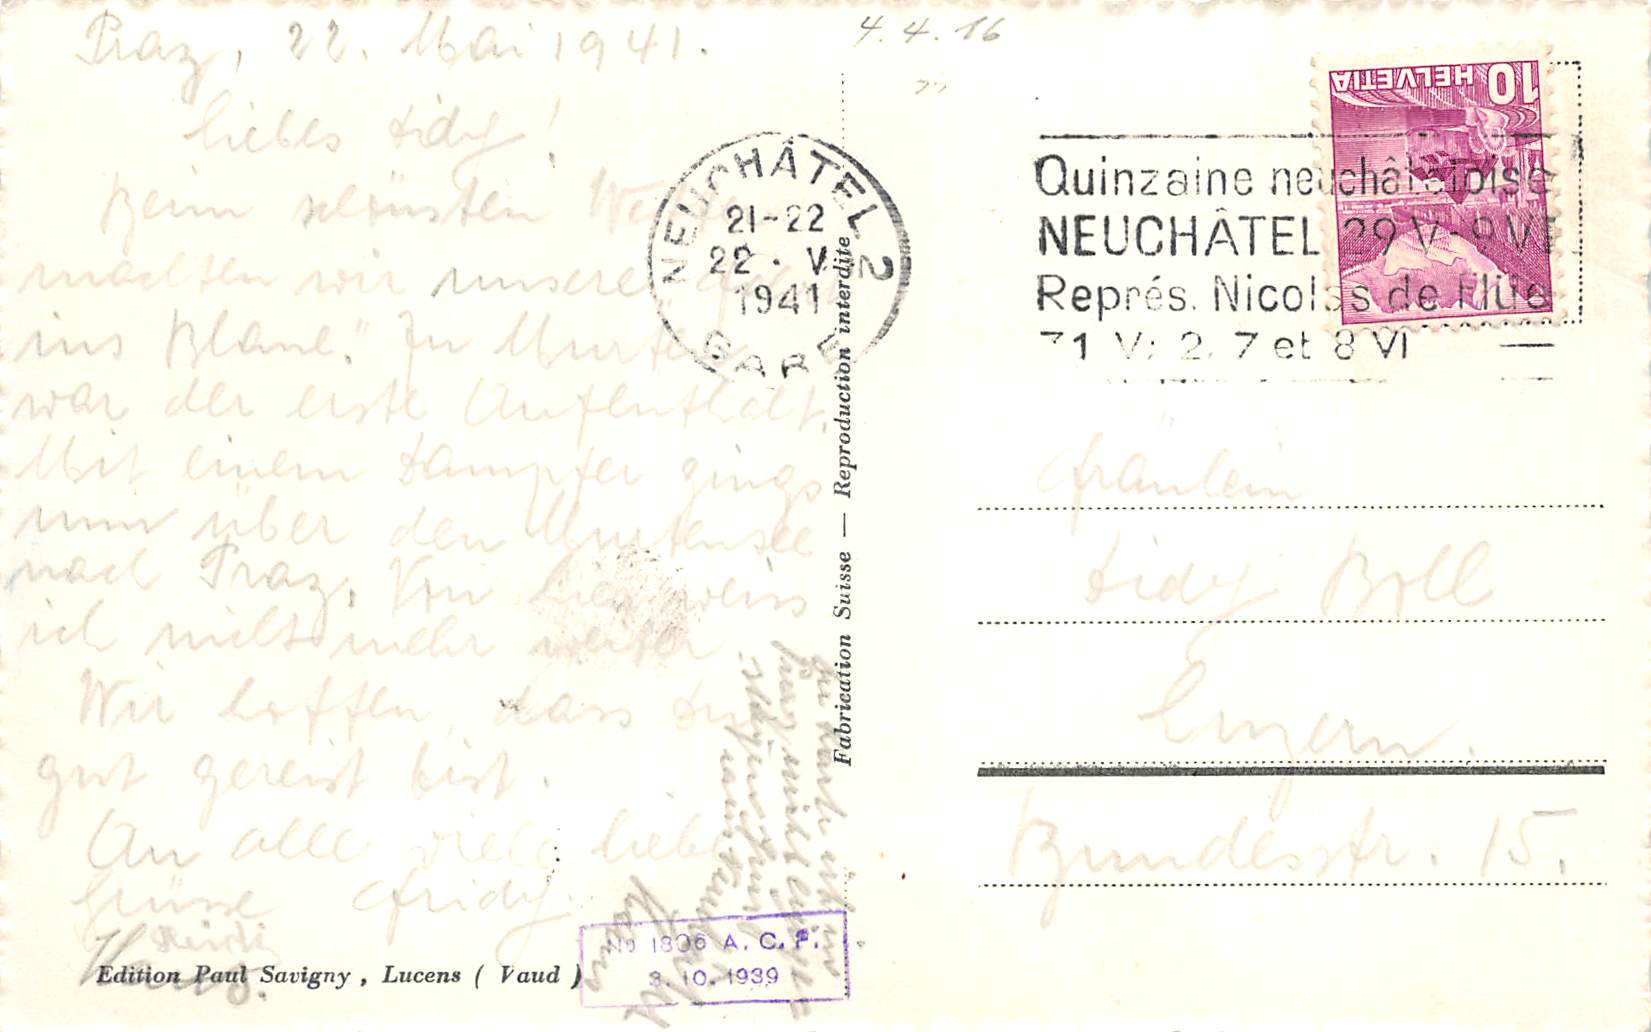 Praz, 22. Mai 1941.
Liebes Lidy!
Beim schönsten
machten wir unsere
ins Blaue." In Murten
war der erste Aufenthalt.
Mit einem Dampfer gings
nun über den Murtensee
nach Praz. Von hier weiss
ich nicht mehr weiter
Wir hoffen, dass Du
gut gereist bist.
An alle viele liebe
Grüsse Fridy
Heidi
Edition Paul Savigny, Lucens ( Vaud )
No 1806 A. C. F.
3. 10. 1939
Fabrication Suisse — Reproduction interdite
4.4.16
NEUCHÂTEL 2
21-22
22 · V.
1941
GARE
HELVETIA 10
Quinzaine neuchâteloise
NEUCHÂTEL 29 V-9 VI
Représ. Nicolas de Flüe
31 V; 2, 7 et 8 VI
Fräulein
Lidy Boll
Luzern.
Bundesstr. 15.